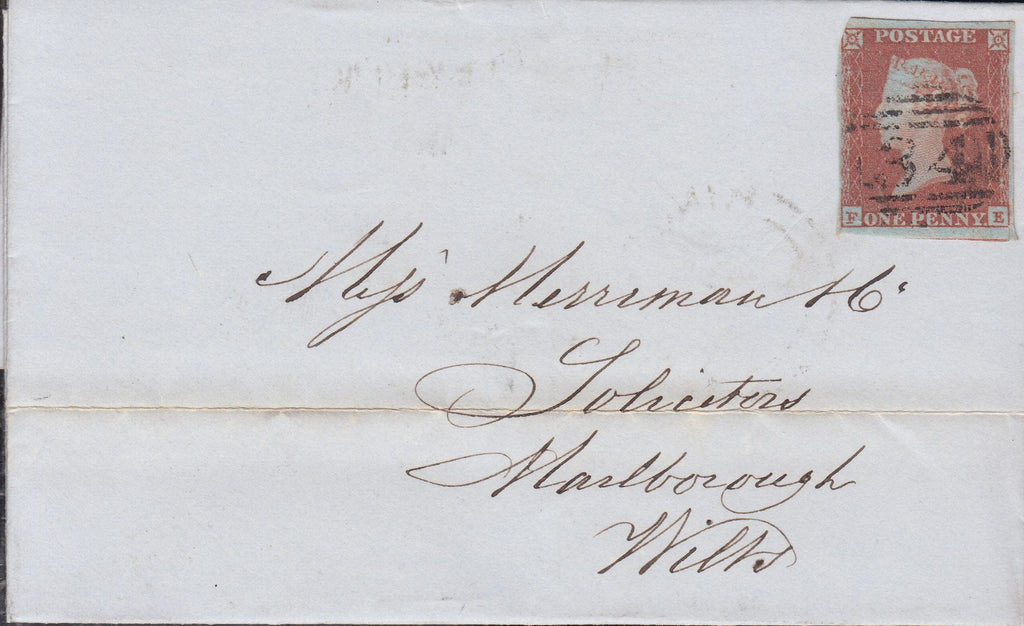 POSTAGE
34
F ONE PENNY E
Mess Merriman &Co
Solicitors
Marlborough
Wilts